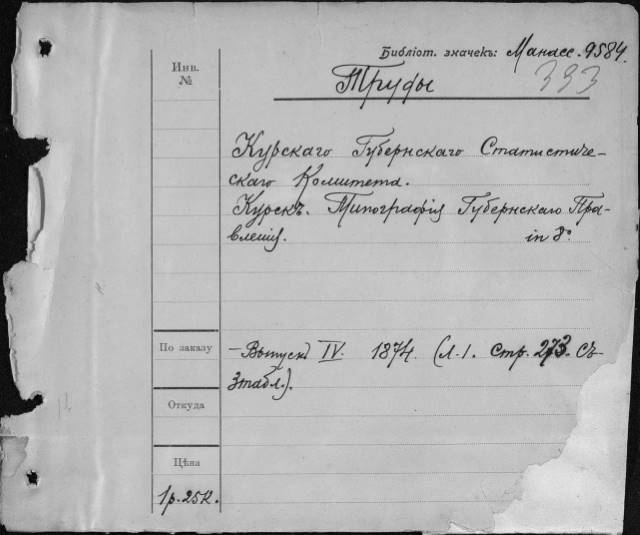 Библіот. значекъ: Манасс. 9584.
Инв.
№
Труды
333
Курскаго Губернскаго Статистиче-
скаго Комитета.
Курскъ. Типографія Губернскаго Пра-
вленія. in 8°.
По заказу
— Выпускъ IV. 1874. (Л. 1. стр. 273. съ
3 табл.).
Откуда
Цѣна
1 р. 25 к.